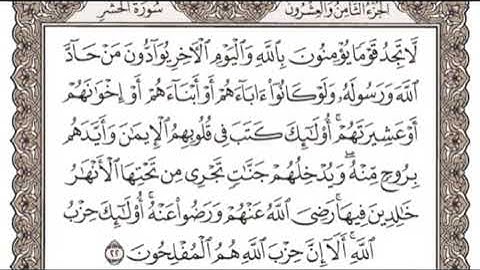 الجزء الثامن والعشرون سورة الحشر
لَّا تَجِدُ قَوْمًا يُؤْمِنُونَ بِٱللَّهِ وَٱلْيَوْمِ ٱلْءَاخِرِ يُوَآدُّونَ مَنْ حَآدَّ
ٱللَّهَ وَرَسُولَهُۥ وَلَوْ كَانُوٓا۟ ءَابَآءَهُمْ أَوْ أَبْنَآءَهُمْ أَوْ إِخْوَٰنَهُمْ
أَوْ عَشِيرَتَهُمْ ۚ أُو۟لَٰٓئِكَ كَتَبَ فِى قُلُوبِهِمُ ٱلْإِيمَٰنَ وَأَيَّدَهُم
بِرُوحٍ مِّنْهُ ۖ وَيُدْخِلُهُمْ جَنَّٰتٍ تَجْرِى مِن تَحْتِهَا ٱلْأَنْهَٰرُ
خَٰلِدِينَ فِيهَا ۚ رَضِىَ ٱللَّهُ عَنْهُمْ وَرَضُوا۟ عَنْهُ ۚ أُو۟لَٰٓئِكَ حِزْبُ
ٱللَّهِ ۚ أَلَآ إِنَّ حِزْبَ ٱللَّهِ هُمُ ٱلْمُفْلِحُونَ ٢٢